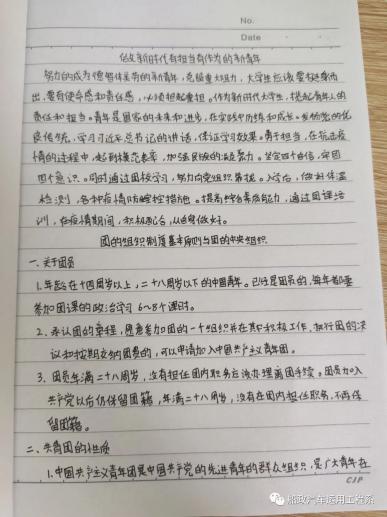 No.
Date
做新时代有担当有作为的新青年
努力的成为德智体美劳的新青年，克服重大阻力，大学生应该要挺身而
出，要有使命感和责任感，必须担起重担。作为新时代大学生，担起青年人的
责任和担当。青年是国家的未来和进步，在实践中历练和成长。发扬党的优
良传统，学习习近平总书记的讲话，保证学习效果。勇于担当，在抗击疫
情的过程中，起到模范表率，加强民族的凝聚力。坚定四个自信，牢固
四个意识。同时通过团校学习，努力向党组织靠拢。入学后，做好体温
检测，各种疫情防控措施。提高综合素质能力，通过团课培
训，在疫情期间，积极配合，从自身做好。
团的组织制度基本原则与团的中央组织
一、关于团员
1.年龄在十四周岁以上，二十八周岁以下的中国青年。已经是团员的，每年都要
参加团课的政治学习6~8个课时。
2、承认团的章程，愿意参加团的一个组织并在其中积极工作、执行团的决
议和按期交纳团费的，可以申请加入中国共产主义青年团。
3、团员年满二十八周岁，没有担任团内职务应该办理离团手续。团员加入
共产党以后仍保留团籍，年满二十八周岁，没有在团内担任职务，不再保
留团籍。
二、共青团的性质
1.中国共产主义青年团是中国共产党的先进青年的群众组织，是广大青年在
CJP
桥政汽车运用工程系